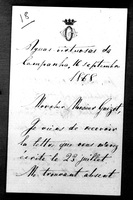 18
Aguas virtuosas de
Campanha, 16 septembre
1868
Monsieur Guizot,
Je viens de recevoir
la lettre que vous m'avez
écrite le 22 juillet
Me trouvant absent